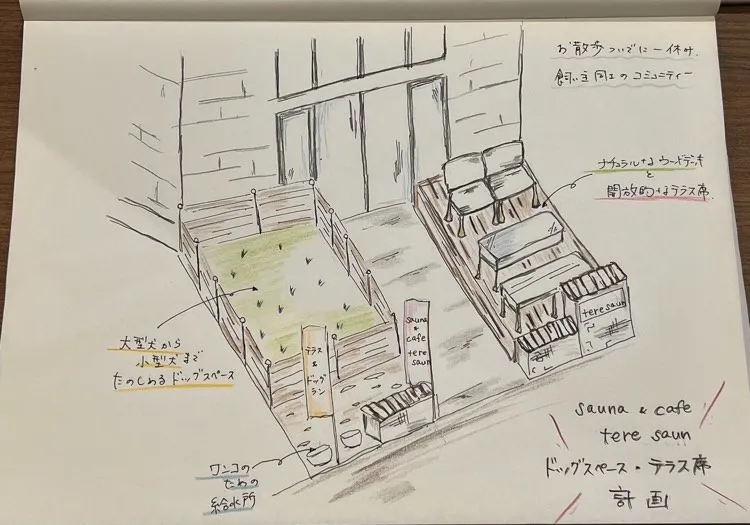 お散歩ついでに一休み.
飼い主同士のコミュニティー
ナチュラルなウッドデッキ
と
開放的なテラス席.
大型犬から
小型犬まで
たのしめるドッグスペース
テラス
&
ドッグ
ラン
sauna
&
cafe
tere
saun
tere saun
ワンコの
ための
給水所
sauna & cafe
tere saun
ドッグスペース・テラス席
計画